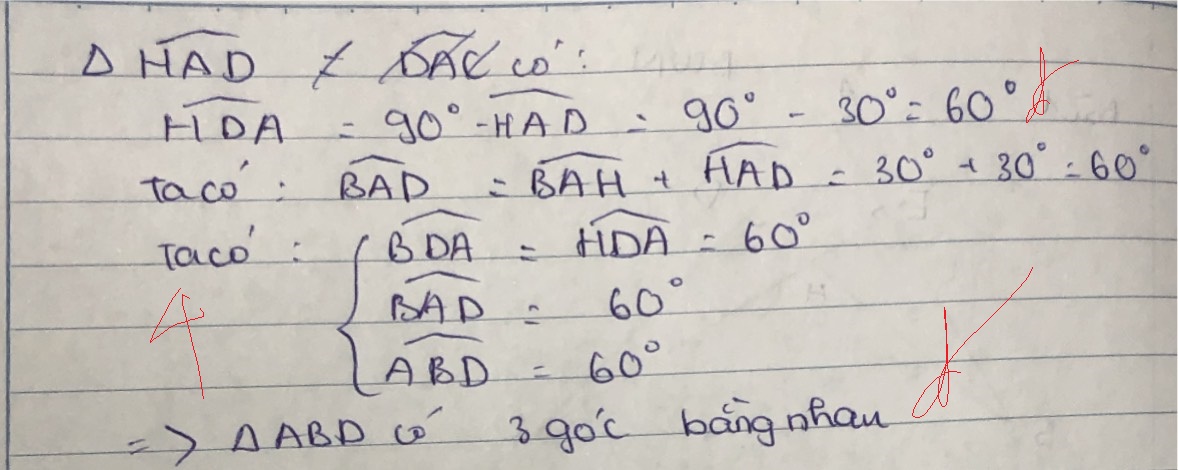 Δ HAD ≠ DAC có :
HDA = 90° - HAD = 90° - 30° = 60° đ
Ta có : BAD = BAH + HAD = 30° + 30° = 60°
Ta có : { BDA = HDA = 60°
BAD = 60°
4
ABD = 60°
=> Δ ABD có 3 góc bằng nhau đ